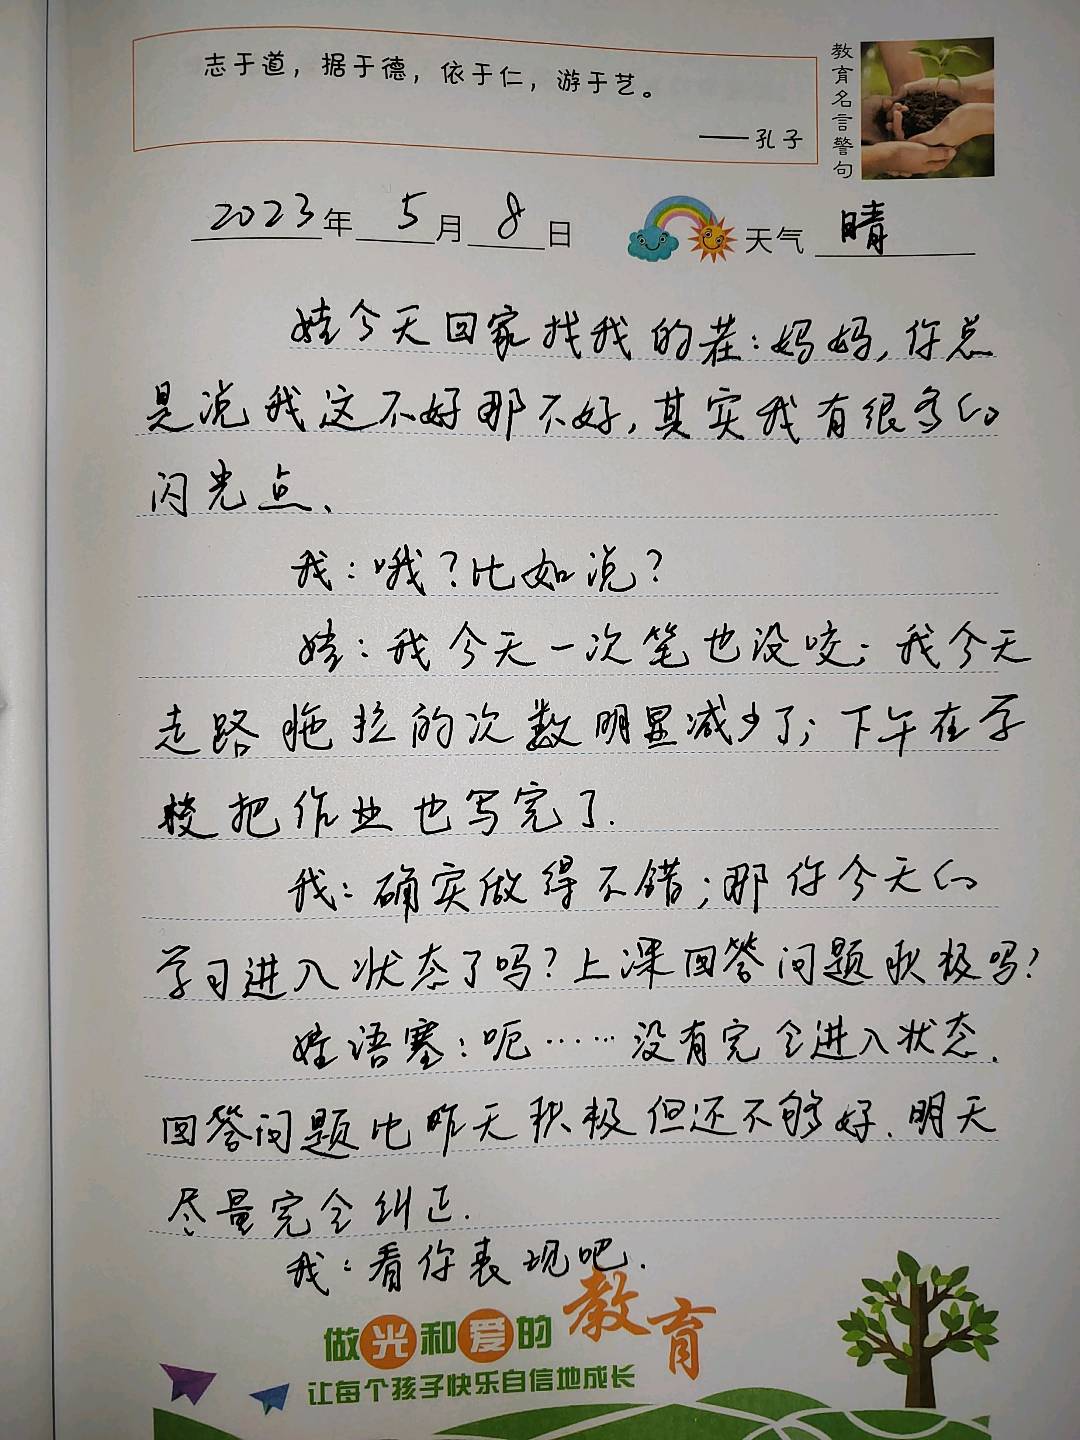 志于道，据于德，依于仁，游于艺。
——孔子
教育名言警句
2023年 5月 8日 天气 晴
娃今天回家找我的茬：妈妈，你总
是说我这不好那不好，其实我有很多的
闪光点、
我：哦？比如说？
娃：我今天一次笔也没咬；我今天
走路拖拉的次数明显减少了；下午在学
校把作业也写完了.
我：确实做得不错；那你今天的
学习进入状态了吗？上课回答问题积极吗？
娃语塞：呃……没有完全进入状态.
回答问题比昨天积极但还不够好.明天
尽量完全纠正.
我：看你表现吧.
做光和爱的教育
让每个孩子快乐自信地成长